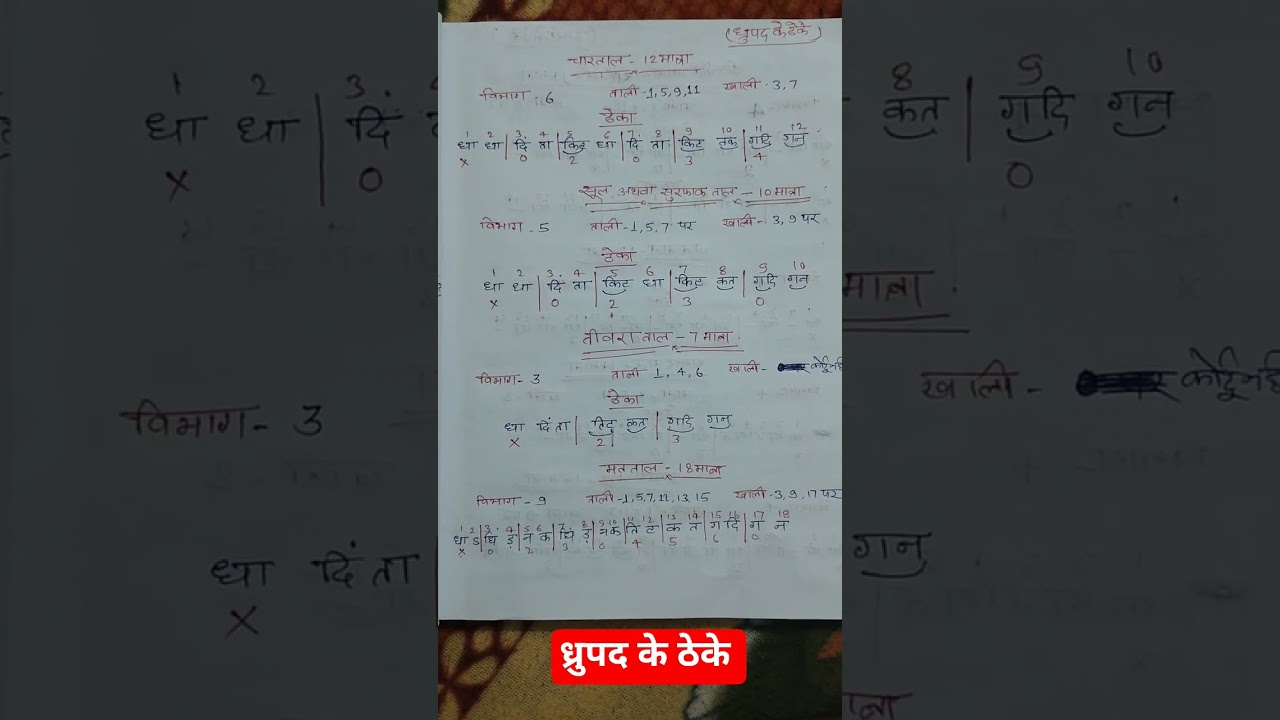 (ध्रुपद के ठेके)
चारताल - 12 मात्रा
विभाग - 6 ताली - 1, 5, 9, 11 खाली - 3, 7
ठेका
1 2 3 4 5 6 7 8 9 10 11 12
धा धा | दिं ता | किट धा | दिं ता | किट तक | गदि गन
x 0 2 0 3 4
सूल अथवा सुरफाक ताल - 10 मात्रा
विभाग - 5 ताली - 1, 5, 7 पर खाली - 3, 9 पर
ठेका
1 2 3 4 5 6 7 8 9 10
धा धा | दिं ता | किट धा | किट कत | गदि गन
x 0 2 3 0
तीवरा ताल - 7 मात्रा
विभाग - 3 ताली 1, 4, 6 खाली -
ठेका
धा दिं ता | तिट कत | गदि गन
x 2 3
मतताल - 18 मात्रा
विभाग - 9 ताली - 1, 5, 7, 11, 13, 15 खाली - 3, 9, 17 पर
1 2 3 4 5 6 7 8 9 10 11 12 13 14 15 16 17 18
धा ऽ | घि ड़ | न क | घि ड़ | न क | ति ट | क त | ग दि | ग न
x 0 2 3 0 4 5 6 0
ध्रुपद के ठेके